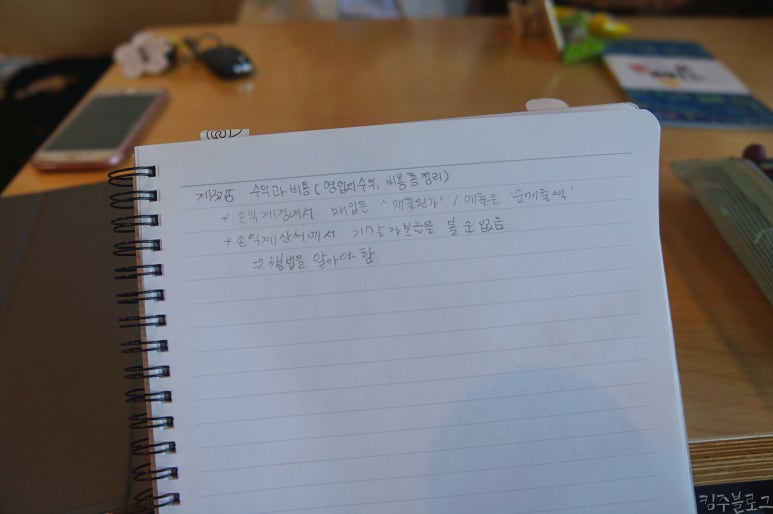 수익과 비용 (영업외수익, 비용 총정리)
* 손익계정에서 매입은 '매출원가' / 매출은 '순매출액'
* 손익계산서에서 기말자본금을 볼 수 없음
⇒ 해법을 알아야 함
킴주블로그